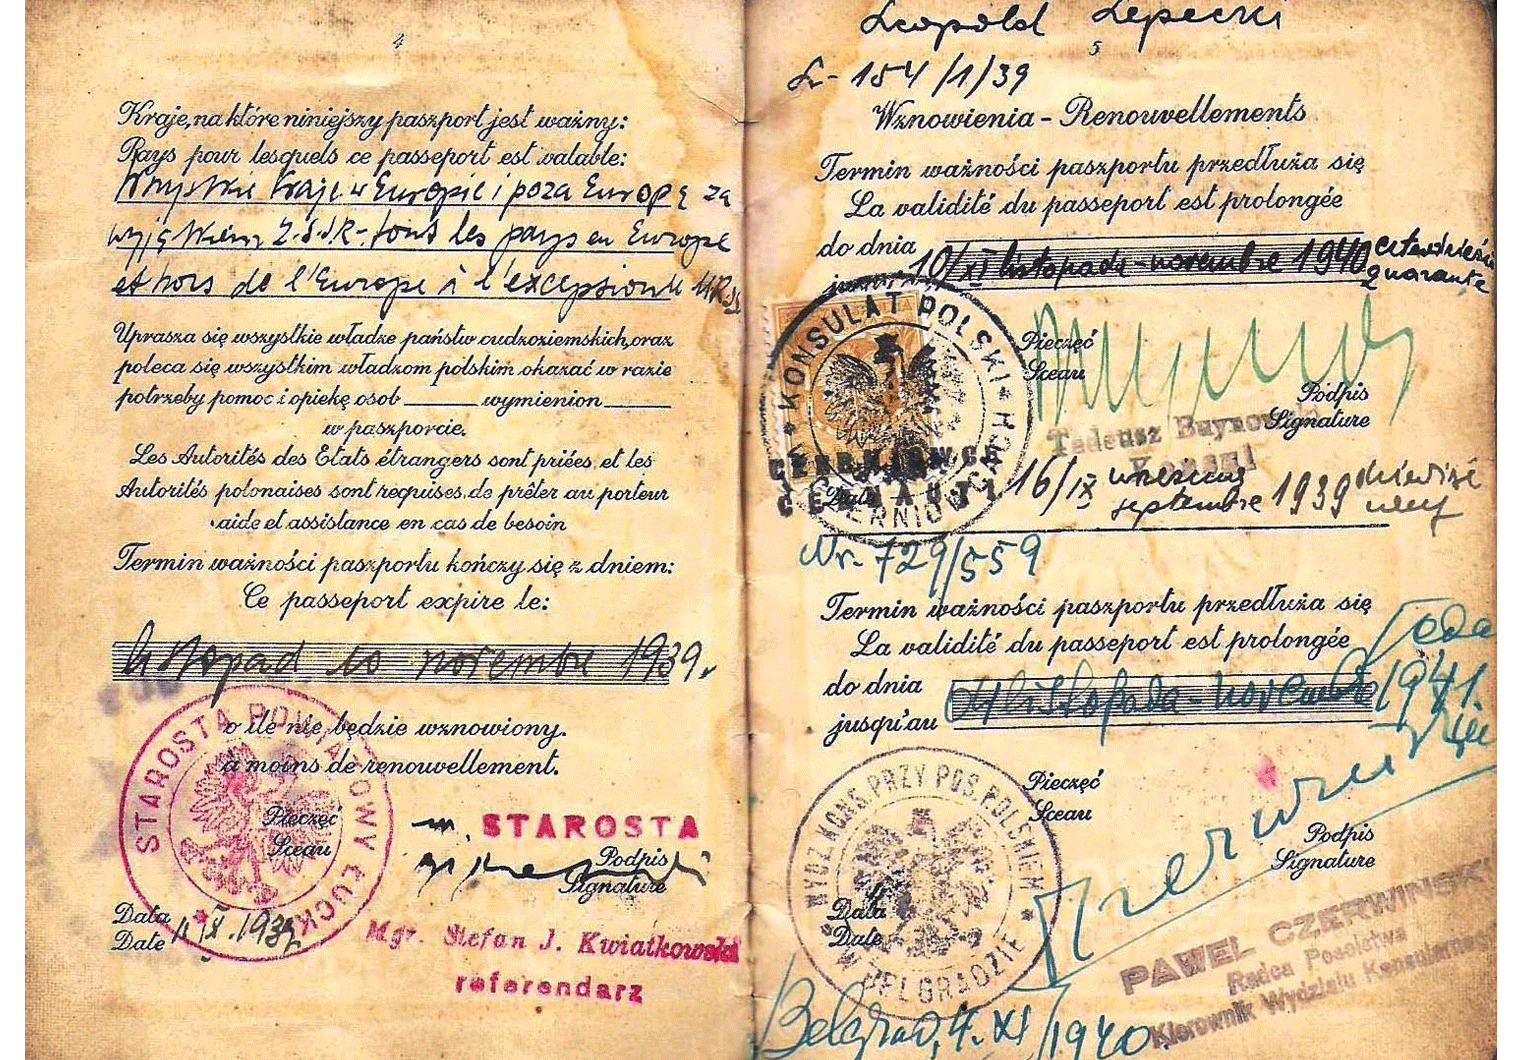 4
Kraje, na które niniejszy paszport jest ważny:
Pays pour lesquels ce passeport est valable:
Wszystkie kraje w Europie i poza Europą za
wyjątkiem Z.S.S.R - tous les pays en Europe
et hors de l'Europe à l'exception de URSS
Uprasza się wszystkie władze państw cudzoziemskich, oraz
poleca się wszystkim władzom polskim okazać w razie
potrzeby pomoc i opiekę osob wymienion
w paszporcie.
Les Autorités des Etats étrangers sont priées, et les
Autorités polonaises sont requises, de prêter au porteur
aide et assistance en cas de besoin
Termin ważności paszportu kończy się z dniem:
Ce passeport expire le:
listopad 10 novembre 1939.
o ile nie będzie wznowiony.
à moins de renouvellement.
STAROSTA POWIATOWY ŁUCKI
Pieczęć
Sceau
STAROSTA
Podpis
Signature
Data
Date
Mgr. Stefan J. Kwiatkowski
referendarz
Leopold Lepecki
5
154/1/39
Wznowienia - Renouvellements
Termin ważności paszportu przedłuża się
La validité du passeport est prolongée
do dnia 10/XI listopada - novembre 1940 czterdzieści
quarante
KONSULAT POLSKI
CZERNIOWCE
CERNAUTI
Pieczęć
Sceau
Podpis
Signature
Tadeusz Buynowski
Konsul
Date 16/IX września
septembre 1939
Nr. 729/559
Termin ważności paszportu przedłuża się
La validité du passeport est prolongée
do dnia
jusqu'au listopada - novembre 1941.
WYDZ. KONS. PRZY POS. POLSKIEM
W BELGRADZIE
Pieczęć
Sceau
Podpis
Signature
Data
Date
PAWEL CZERWINSKI
Radca Poselstwa
Kierownik Wydziału Konsularnego
Belgrad, 4. XI 1940.